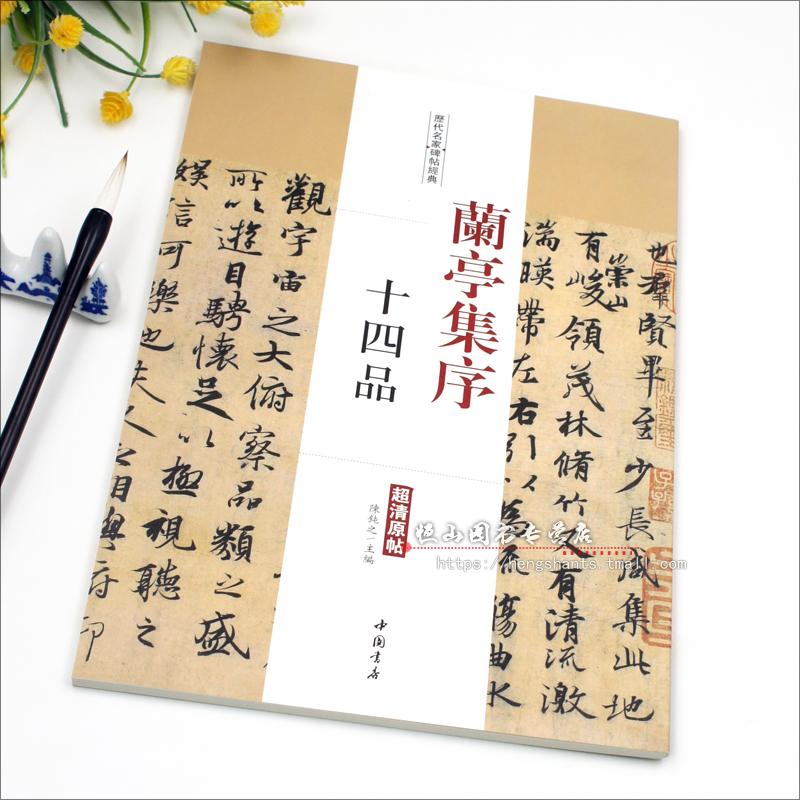 也羣賢畢至少長咸集此地
有崇山峻領茂林脩竹又有清流激
湍暎帶左右引以為流觴曲水
歷代名家碑帖經典
蘭亭集序
十四品
超清原帖
陳鈍之/主編
中国書店
觀宇宙之大俯察品類之盛
所以遊目騁懷足以極視聽之
娛信可樂也夫人之相與俯仰
恒山图书专营店
https://hengshants.tmall.com